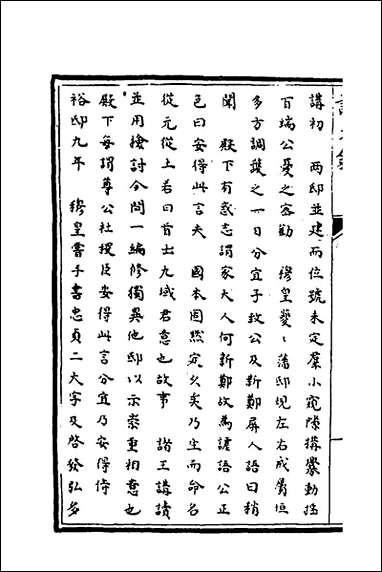 講初　兩邸並建而位號未定羣小窺隙搆釁動揺
百端公憂之密勸　穆皇夔夔藩邸現左右戒屬垣
多方調護之一日分宜子致公及新鄭屏人語曰稍
聞　殿下有惑志謂家大人何新鄭故為謔語公正
色曰安得此言夫　國本固然定久矣乃生而命名
從元從土若曰首出九域君意也故事　諸王講讀
並用撿討今問一編修獨異他邸以示崇重相意也
殿下每謂尊公社稷臣安得此言分宜乃安得侍
裕邸九年　穆皇嘗手書忠貞二大字及啓發弘多